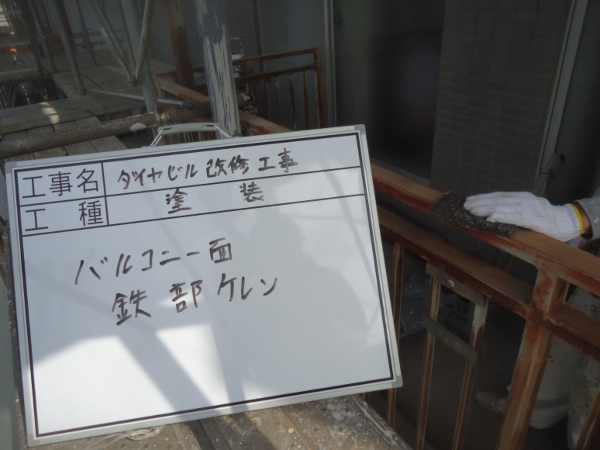 工事名 ダイヤビル改修工事
工種 塗装
バルコニー面
鉄部ケレン